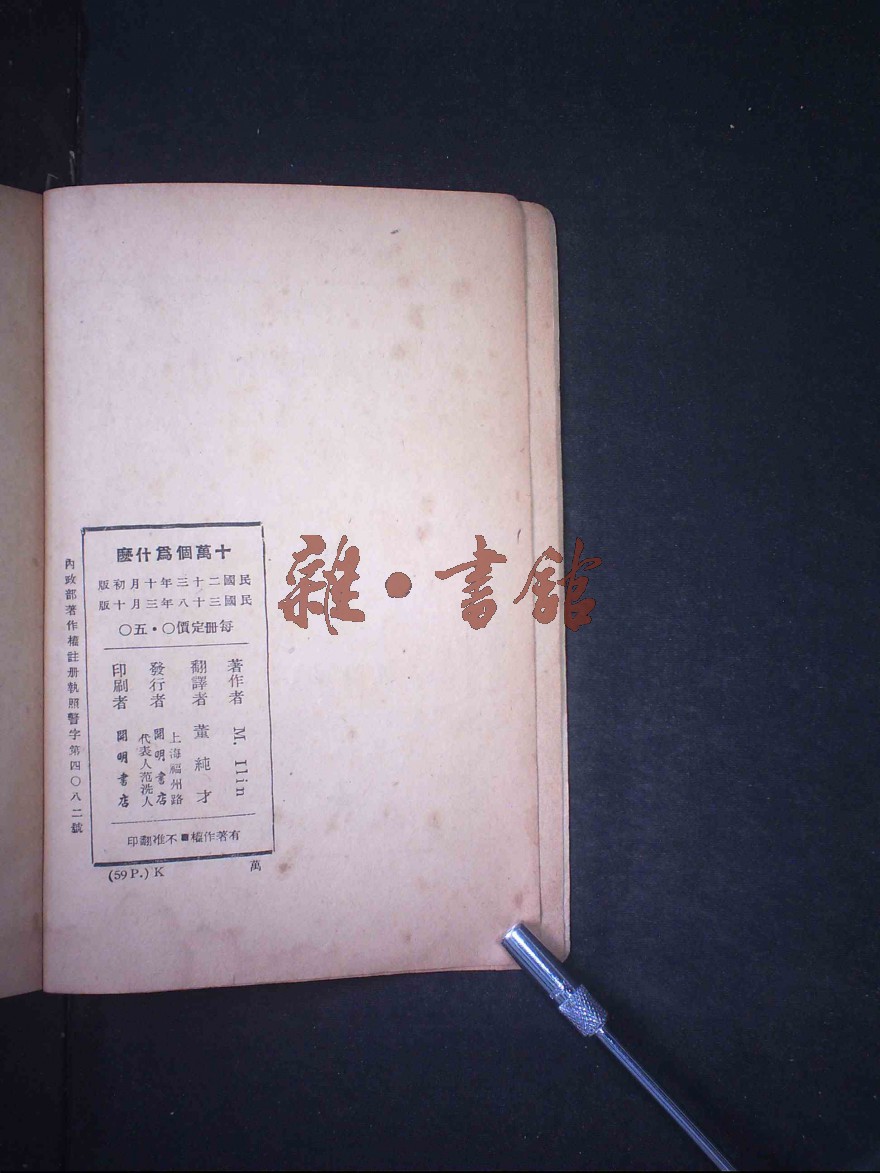 十萬個爲什麽
民國二十三年十月初版
民國三十八年三月十版
每冊定價〇·五〇
著作者 M. Ilin
翻譯者 董純才
發行者 上海福州路 開明書店 代表人范洗人
印刷者 開明書店
有著作權■不准翻印
內政部著作權註册執照警字第四〇八二號
(59 P.) K 萬
雜·書館